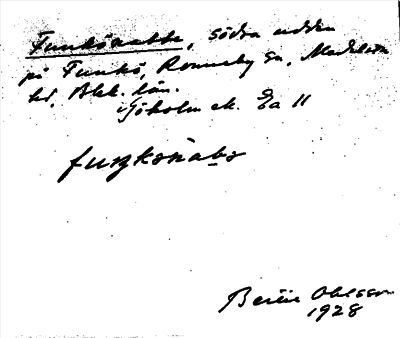 Funkönabbe, södra udden
på Funkö, Ronneby sn, Medelsta
hd, Blek. län.
Sjöholm ek. Ea 11
fuŋkönabə
Bertil Ohlsson
1928